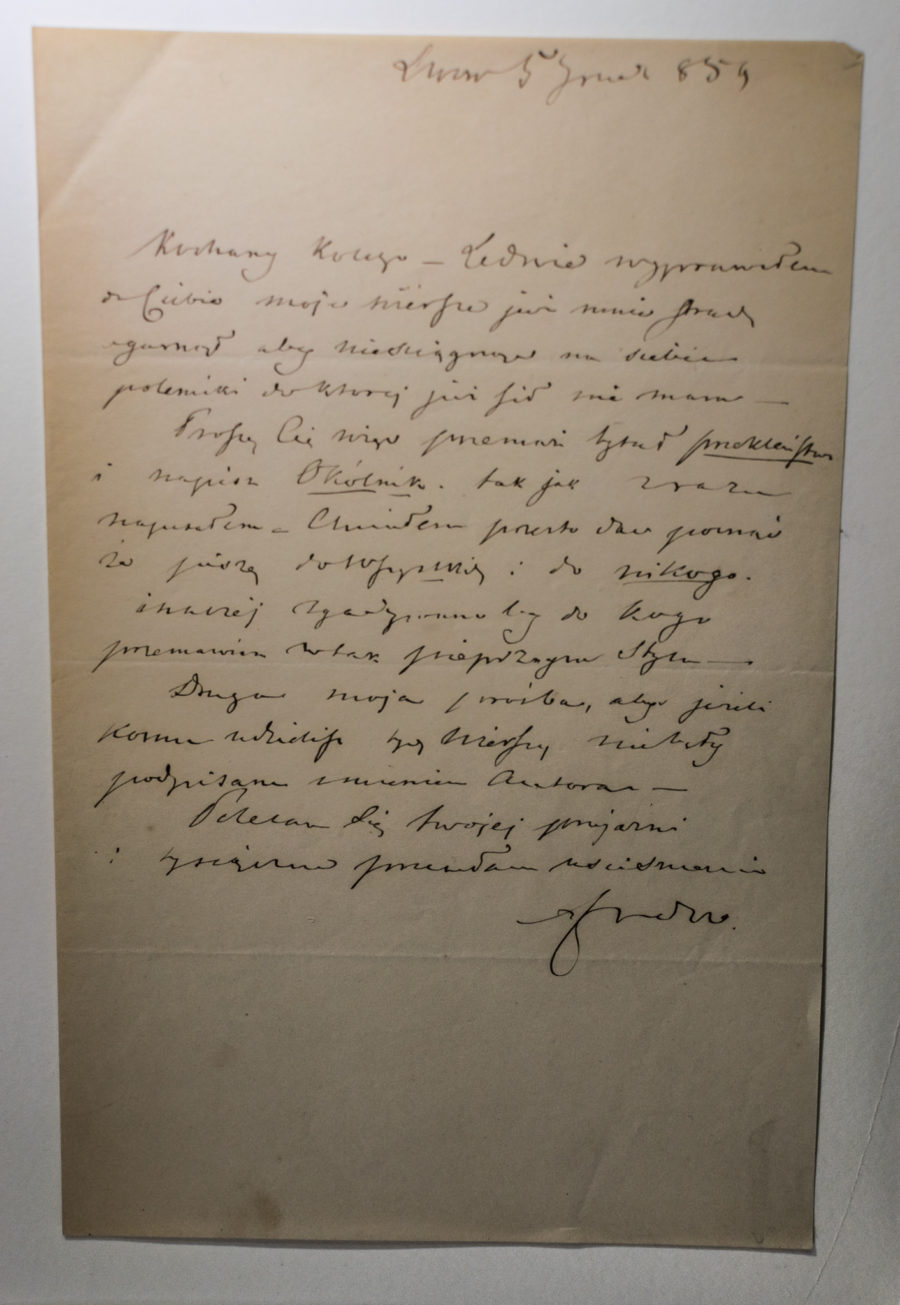 Lwów 5 Grud 859
Kochany Kolego – Ledwie wyprawiłem
do Ciebie moje wiersze już mnie strach
ogarnął aby nieściągnąć na siebie
polemiki do której już sił nie mam –
Proszę Cię więc przemaż tytuł przekleństwo
i napisz Okólnik. tak jak zrazu
napisałem – Chciałem przez to dać poznać
że piszę do wszystkich i do nikogo.
inaczej zgadywano by do kogo
przemawiam w tak pieprznym Stylu –
Druga moja prośba, abyś jeżeli
komu udzielisz tych wierszy, nie były
podpisane imieniem Autora –
Polecam Się twojej przyjaźni
i tysiączne przesyłam uściśnienia
AFredro.